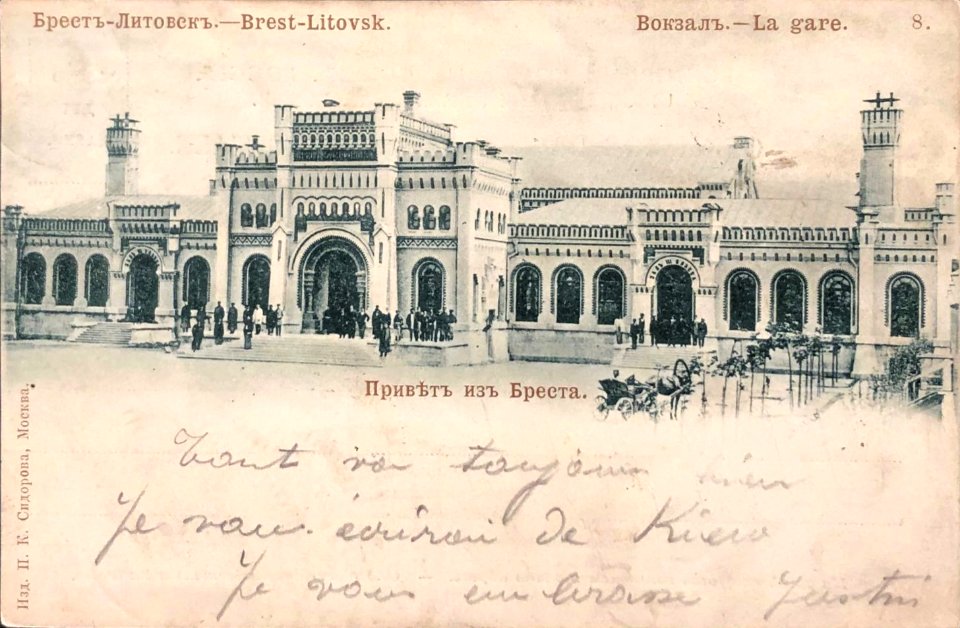 Брестъ-Литовскъ.—Brest-Litovsk.
Вокзалъ.—La gare.
8.
Привѣтъ изъ Бреста.
Изд. П. К. Сидорова, Москва.
Tout va toujours
Je vous écrirai de Kiew
Je vous embrasse Justin